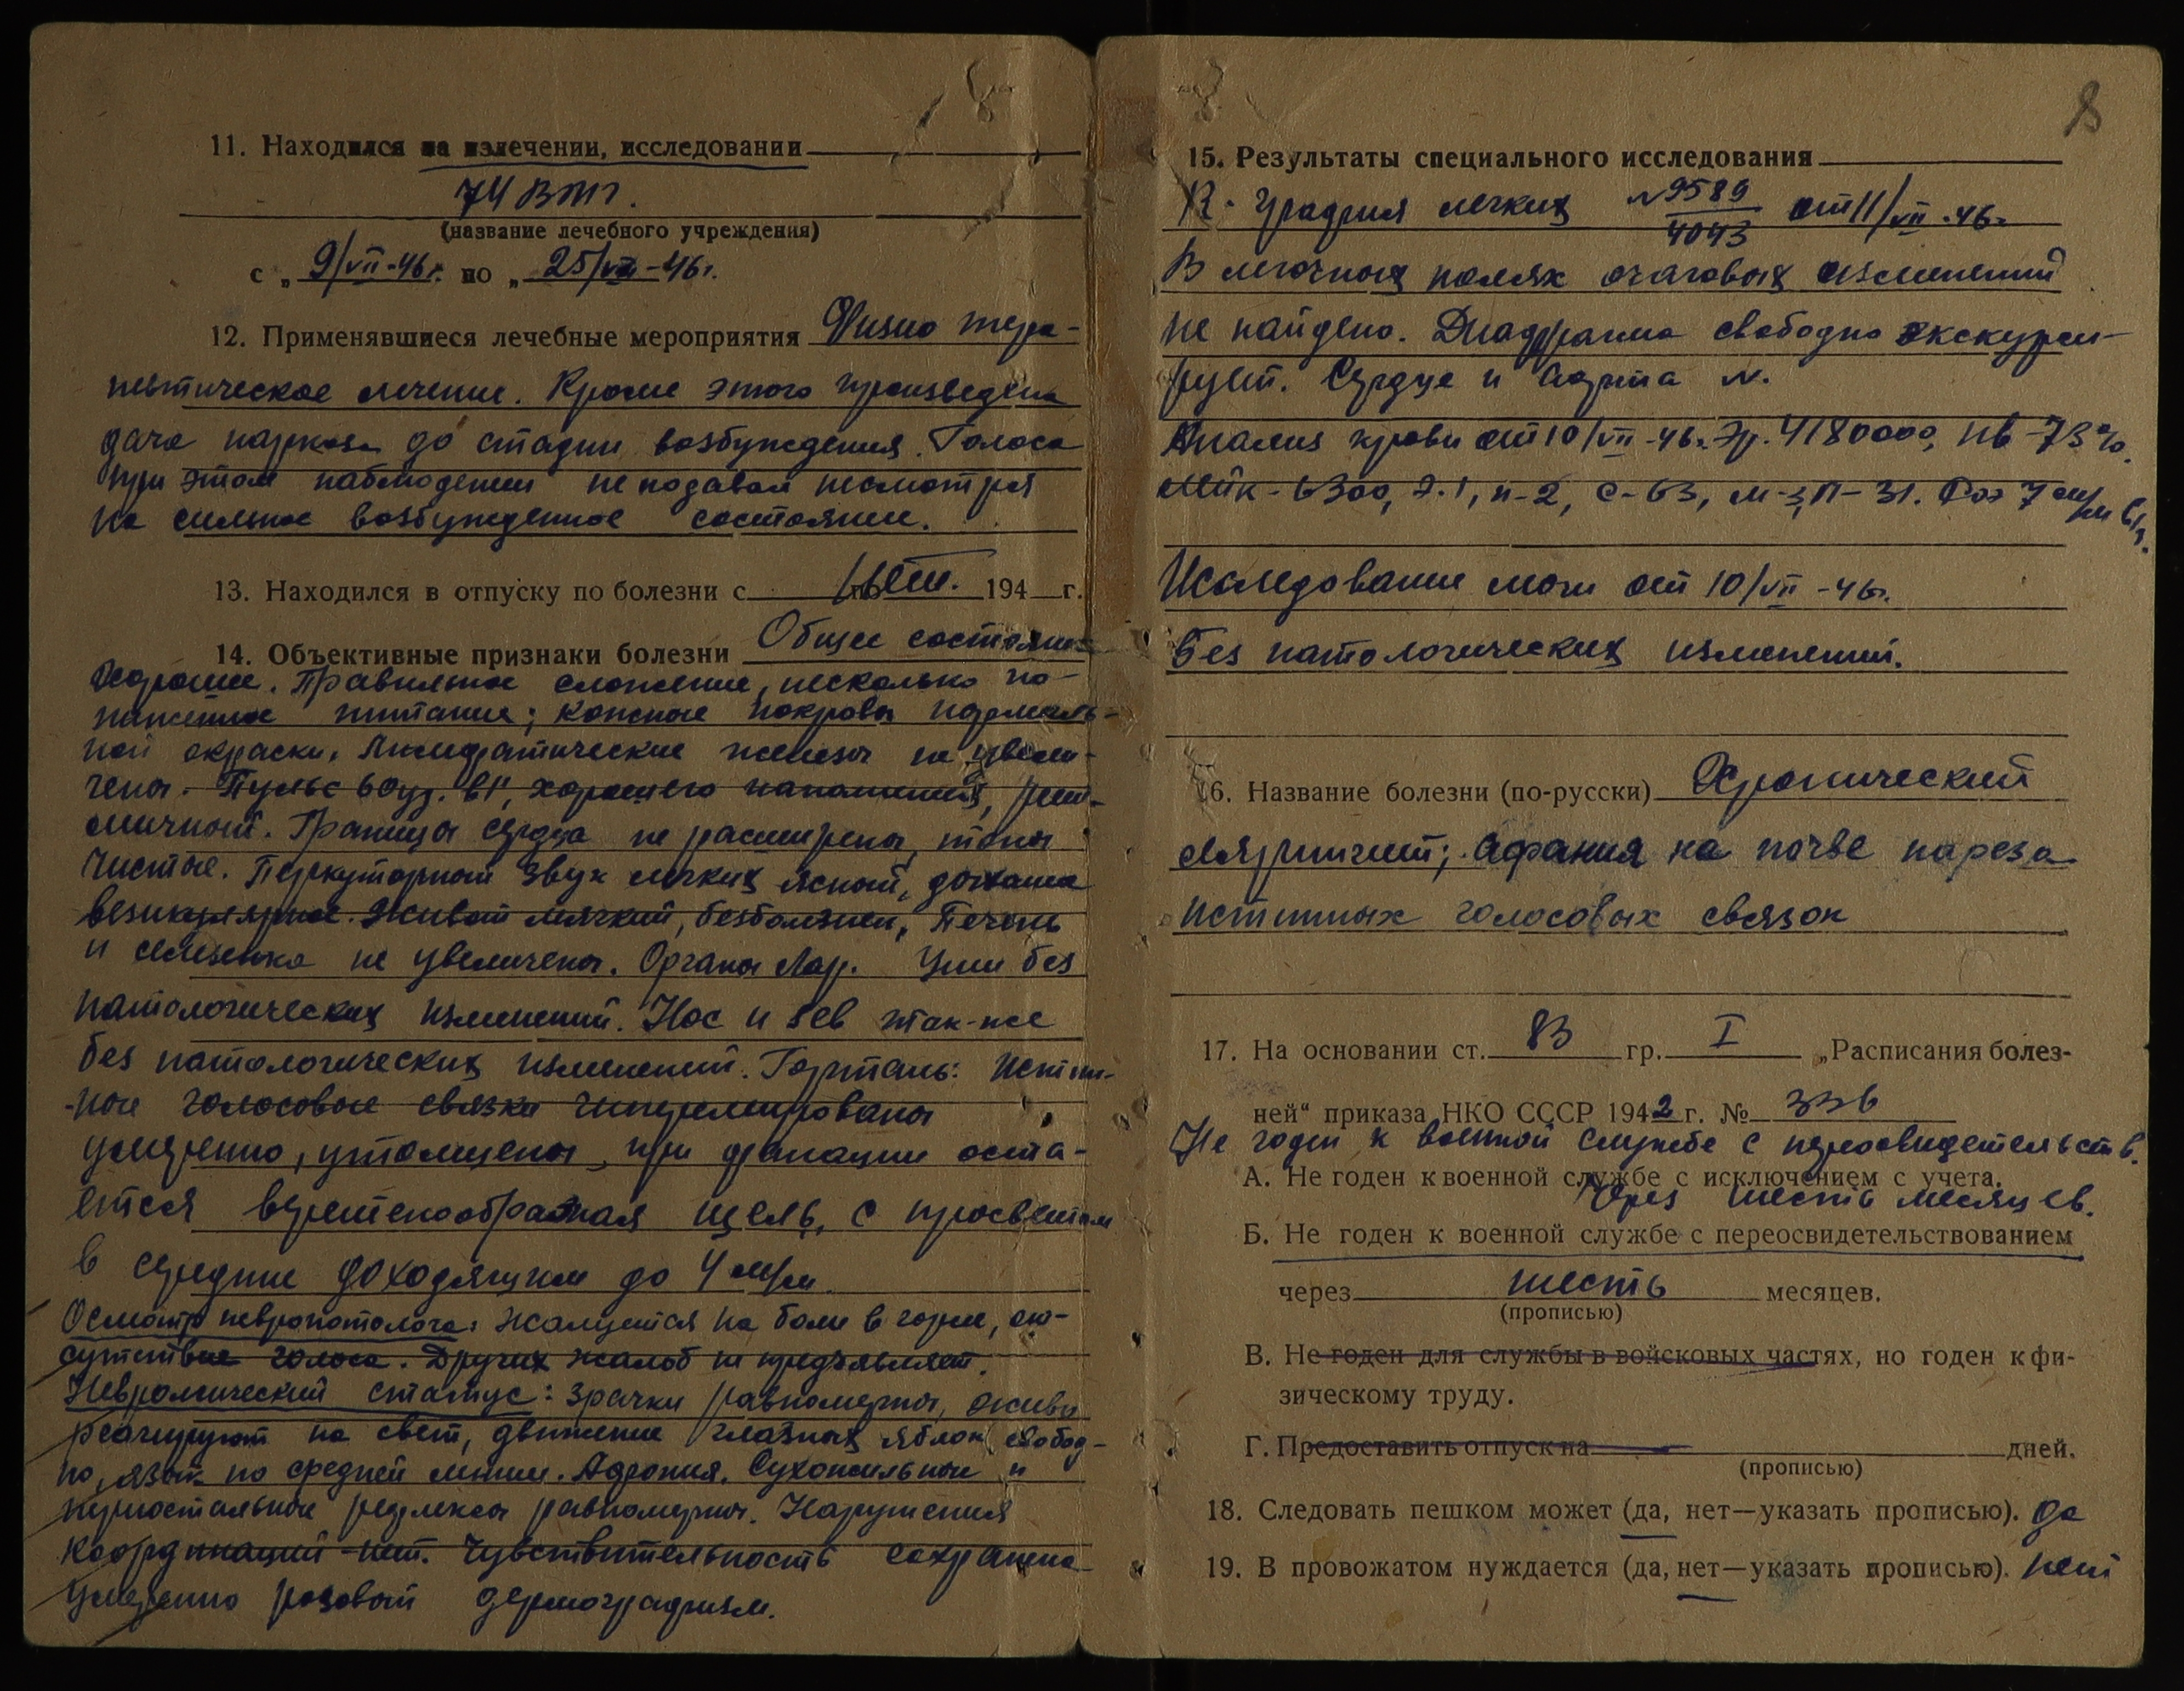 11. Находился на излечении, исследовании
74 ВТГ.
(название лечебного учреждения)
с „ 9/VII-46 г. по „ 25/VII-46 г.
12. Применявшиеся лечебные мероприятия Физио тера-
певтическое лечение. Кроме этого произведена
дача наркоза до стадии возбуждения. Голоса
при этом наблюдении не подавал несмотря
на сильное возбужденное состояние.
13. Находился в отпуску по болезни с нет. 194 г.
14. Объективные признаки болезни Общее состояние
хорошее. Правильное сложение, несколько по-
ниженное питание; кожные покровы нормаль-
ной окраски. Лимфатические железы не увели-
чены. Пульс 60 уд. в 1', хорошего наполнения, рит-
мичный. Границы сердца не расширены, тоны
чистые. Перкуторный звук легких ясный, дыхание
везикулярное. Живот мягкий, безболезнен, Печень
и селезенка не увеличены. Органы Лор. Уши без
патологических изменений. Нос и зев так-же
без патологических изменений. Гортань: Истин-
-ные голосовые связки гиперемированы
умеренно, утолщены, при фонации оста-
ется веретенообразная щель, с просветом
в средине доходящим до 4 м/м.
Осмотр невропотолога: жалуется на боли в горле, от-
сутствие голоса. Других жалоб не предъявляет.
Неврологический статус: зрачки равномерны, живо
реагируют на свет, движение глазных яблок свобод-
но, язык по средней линии. Афония. Сухожильные и
периостальные рефлексы равномерны. Нарушения
координаций нет. Чувствительность сохранена
Умеренно розовый дермографизм.
8
15. Результаты специального исследования
R-графия легких №9589/4043 от 11/VII-46г.
В легочных полях очаговых изменений
не найдено. Диафрагма свободно экскурси-
рует. Сердце и Аорта N.
Анализ крови от 10/VII-46г. Эр. 4180000, Нв-73%.
Лейк-6300, Э.1, п-2, С-63, м-3, Л-31. Роэ 7 м/м в 1ч.
Исследование мочи от 10/VII-46г.
без патологических изменений.
16. Название болезни (по-русски) Хронический
ларингит; Афания на почве пареза
истинных голосовых связок
17. На основании ст. 83 гр. I „Расписания болез-
ней“ приказа НКО СССР 1942 г. № 336
Не годен к военной службе с переосвидетельств.
А. Не годен к военной службе с исключением с учета.
Через шесть месяцев.
Б. Не годен к военной службе с переосвидетельствованием
через шесть месяцев.
(прописью)
В. Не годен для службы в войсковых частях, но годен к фи-
зическому труду.
Г. Предоставить отпуск на дней.
(прописью)
18. Следовать пешком может (да, нет—указать прописью). да
19. В провожатом нуждается (да, нет—указать прописью). нет